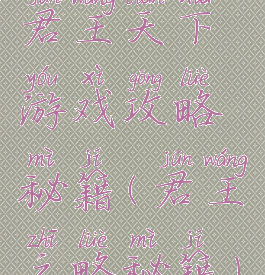 jūn wáng tiān xià
君王天下
yóu xì gōng lüè
游戏攻略
mì jí ( jūn wáng
秘籍(君王
zhī lüè mì jí )
之略秘籍)